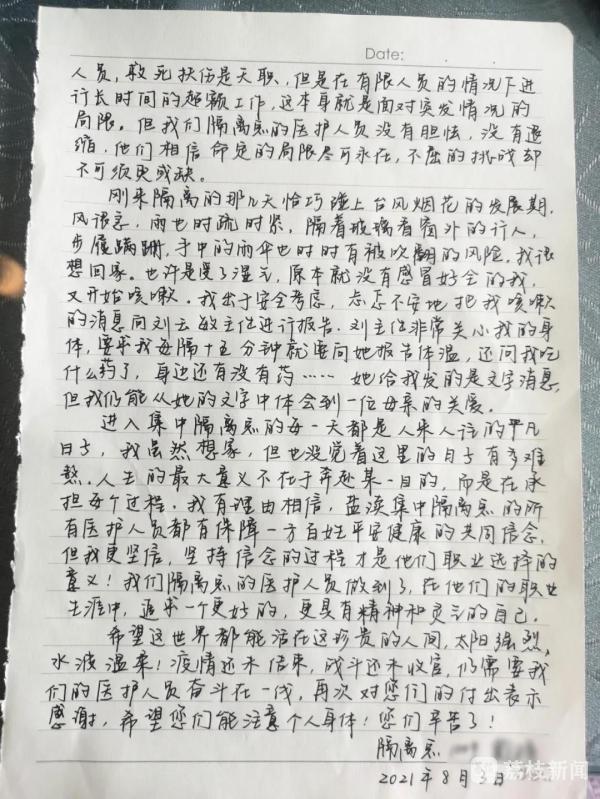 Date:
人员，救死扶伤是天职，但是在有限人员的情况下进
行长时间的超额工作，这本身就是面对突发情况的
局限。但我们隔离点的医护人员没有胆怯，没有退
缩，他们相信命定的局限尽可永在，不屈的挑战却
不可须臾或缺。
刚来隔离的那几天恰巧碰上台风烟花的发展期，
风很急，雨也时疏时紧，隔着玻璃看窗外的行人，
步履蹒跚，手中的雨伞也时时有被吹翻的风险。我很
想回家。也许是受了湿气，原本就没有感冒好全的我，
又开始咳嗽。我出于安全考虑，忐忑不安地把我咳嗽
的消息向刘云敏主任进行报告。刘主任非常关心我的身
体，要求我每隔十五分钟就要向她报告体温，还问我吃
什么药了，身边还有没有药……她给我发的是文字消息，
但我仍能从她的文字中体会到一位母亲的关爱。
进入集中隔离点的每一天都是人来人往的平凡
日子，我虽然想家，但也没觉着这里的日子有多难
熬。人生的最大意义不在于奔赴某一目的，而是在承
担每个过程。我有理由相信，盂溪集中隔离点的所
有医护人员都有保障一方百姓平安健康的共同信念，
但我更坚信，坚持信念的过程才是他们职业选择的
意义！我们隔离点的医护人员做到了，在他们的职业
生涯中，追求一个更好的，更具有精神和灵气的自己。
希望这世界都能活在这珍贵的人间，太阳强烈，
水波温柔！疫情还未结束，战斗还未收官，仍需要我
们的医护人员奋斗在一线，再次对您们的付出表示
感谢，希望您们能注意个人身体！您们辛苦了！
隔离点
2021年8月3日
荔枝新闻